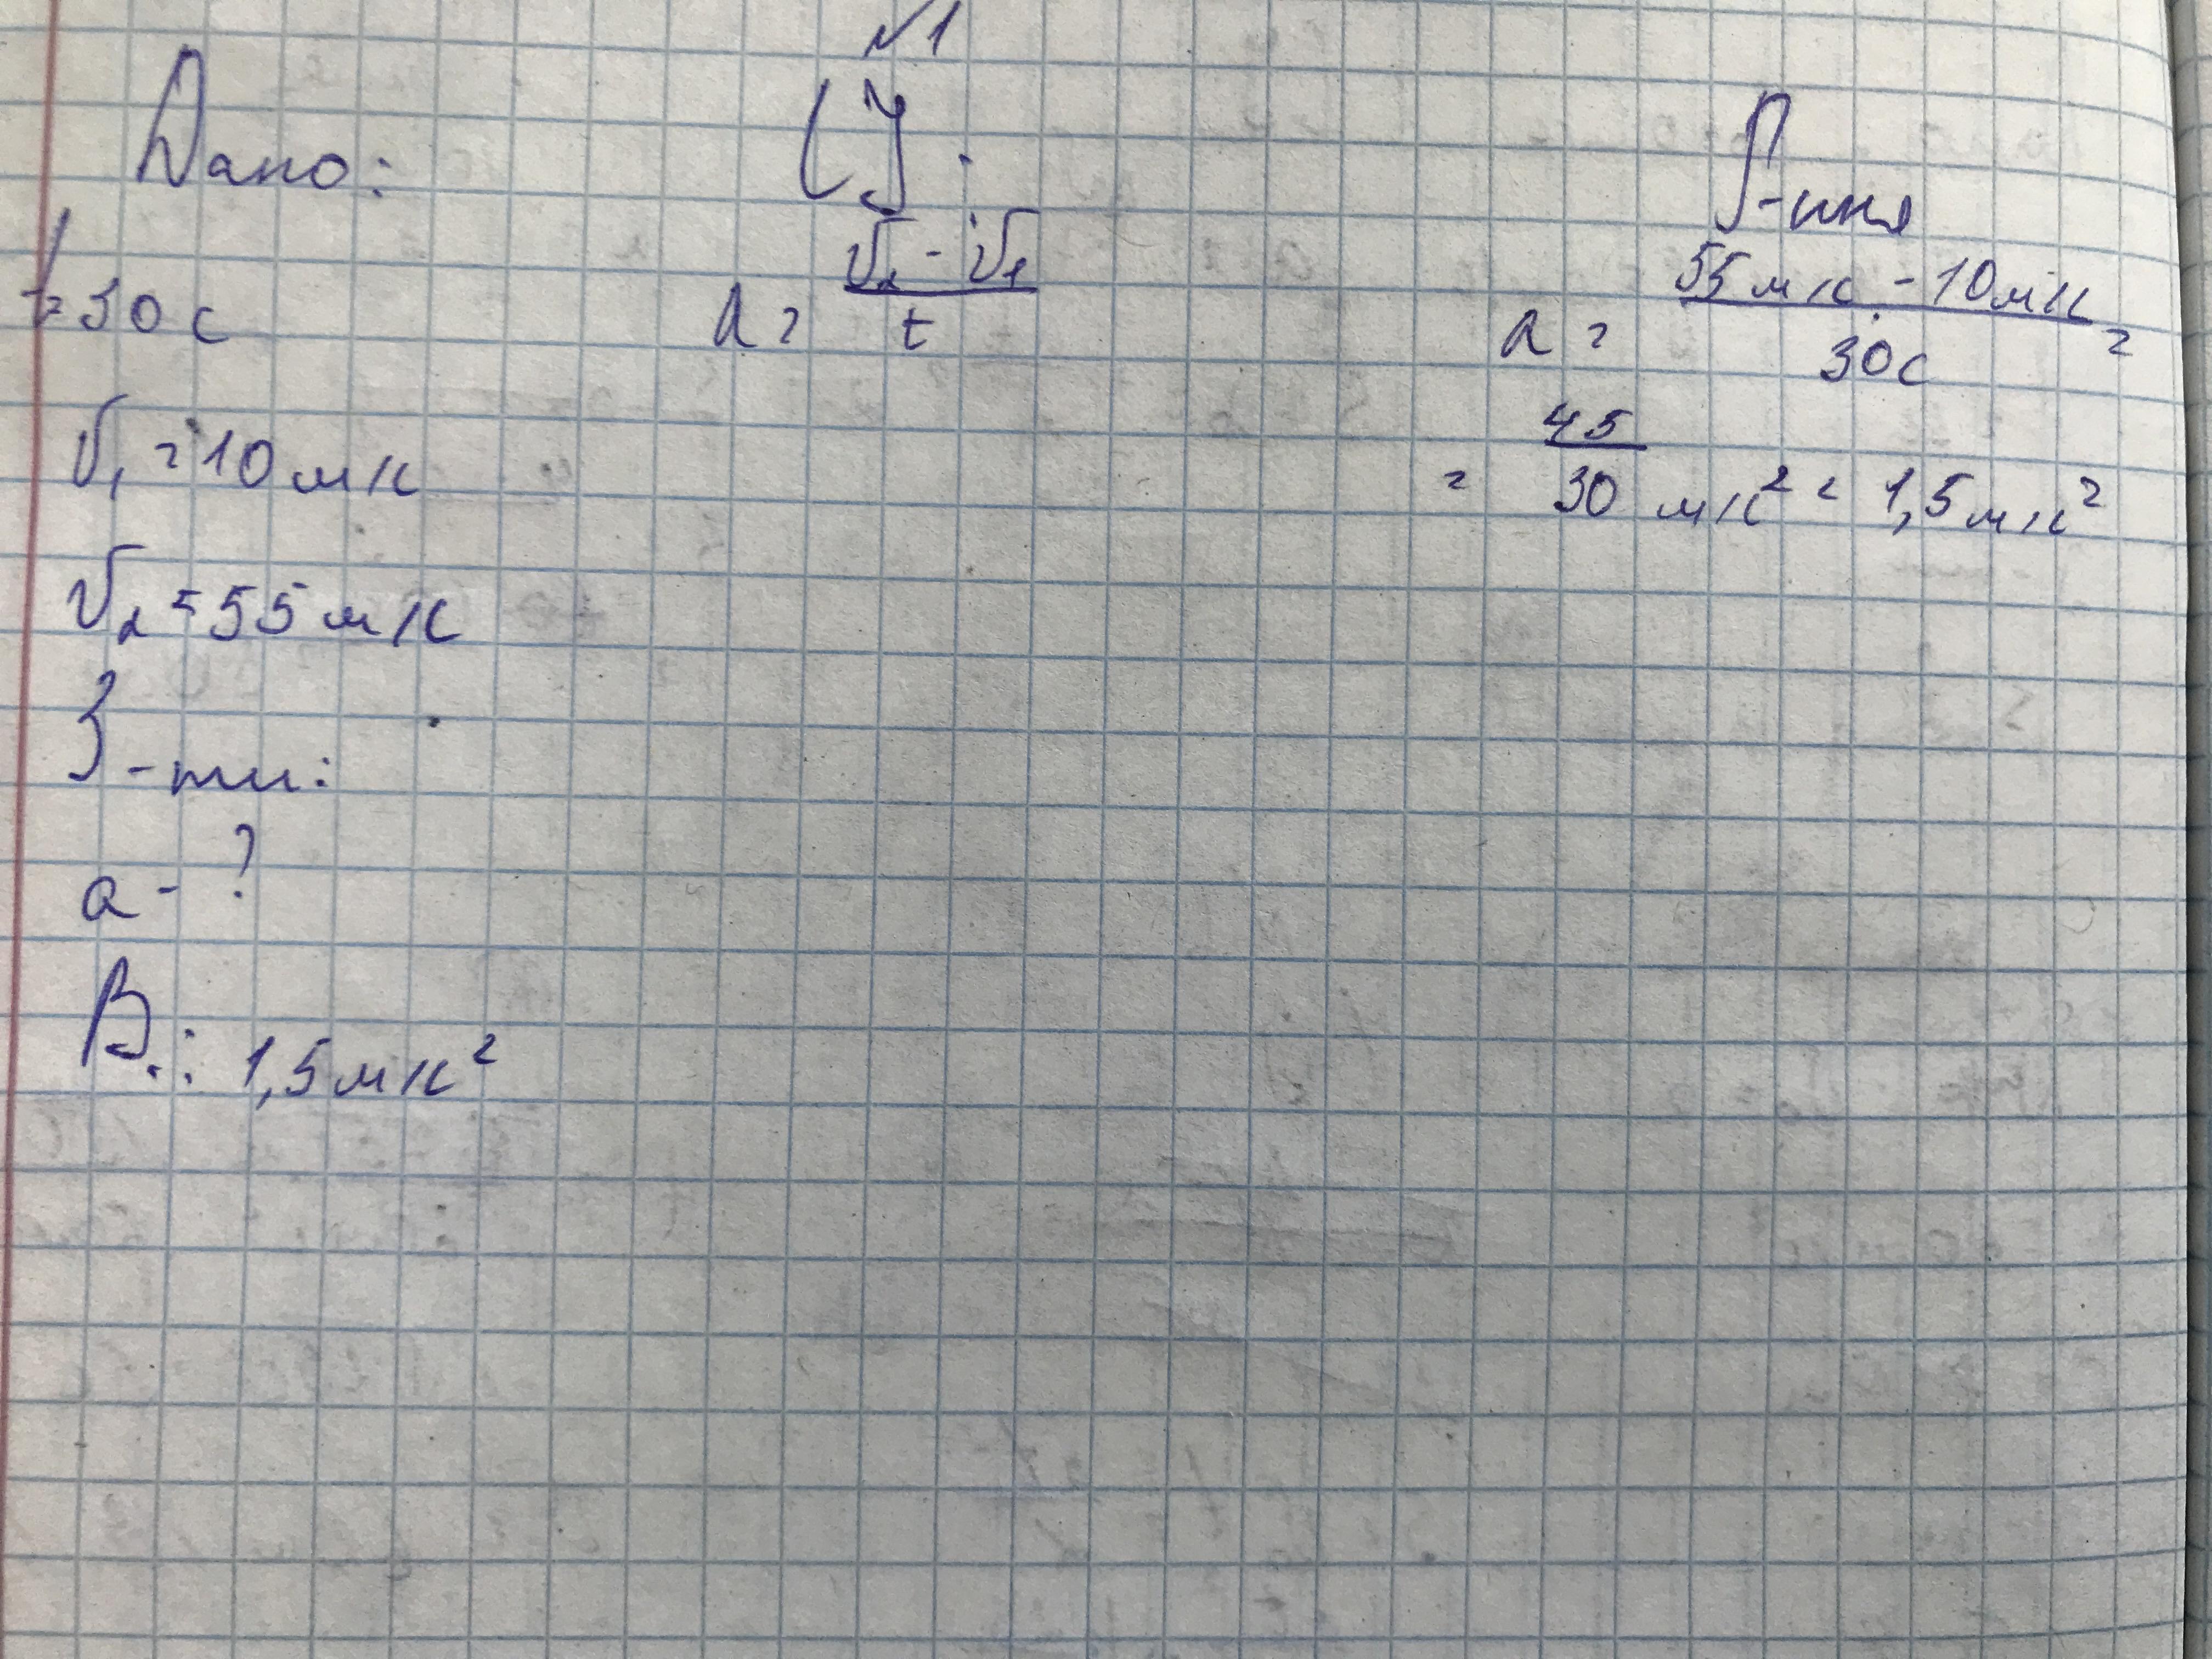 №1
Дано:
t=30 с
V₁ = 10 м/с
V₂ = 55 м/с
З-ти:
a - ?
В.: 1,5 м/с²
СУ
a = (V₂ - V₁)/t
Р-ння
a = (55 м/с - 10 м/с)/30с =
= 45/30 м/с² = 1,5 м/с²